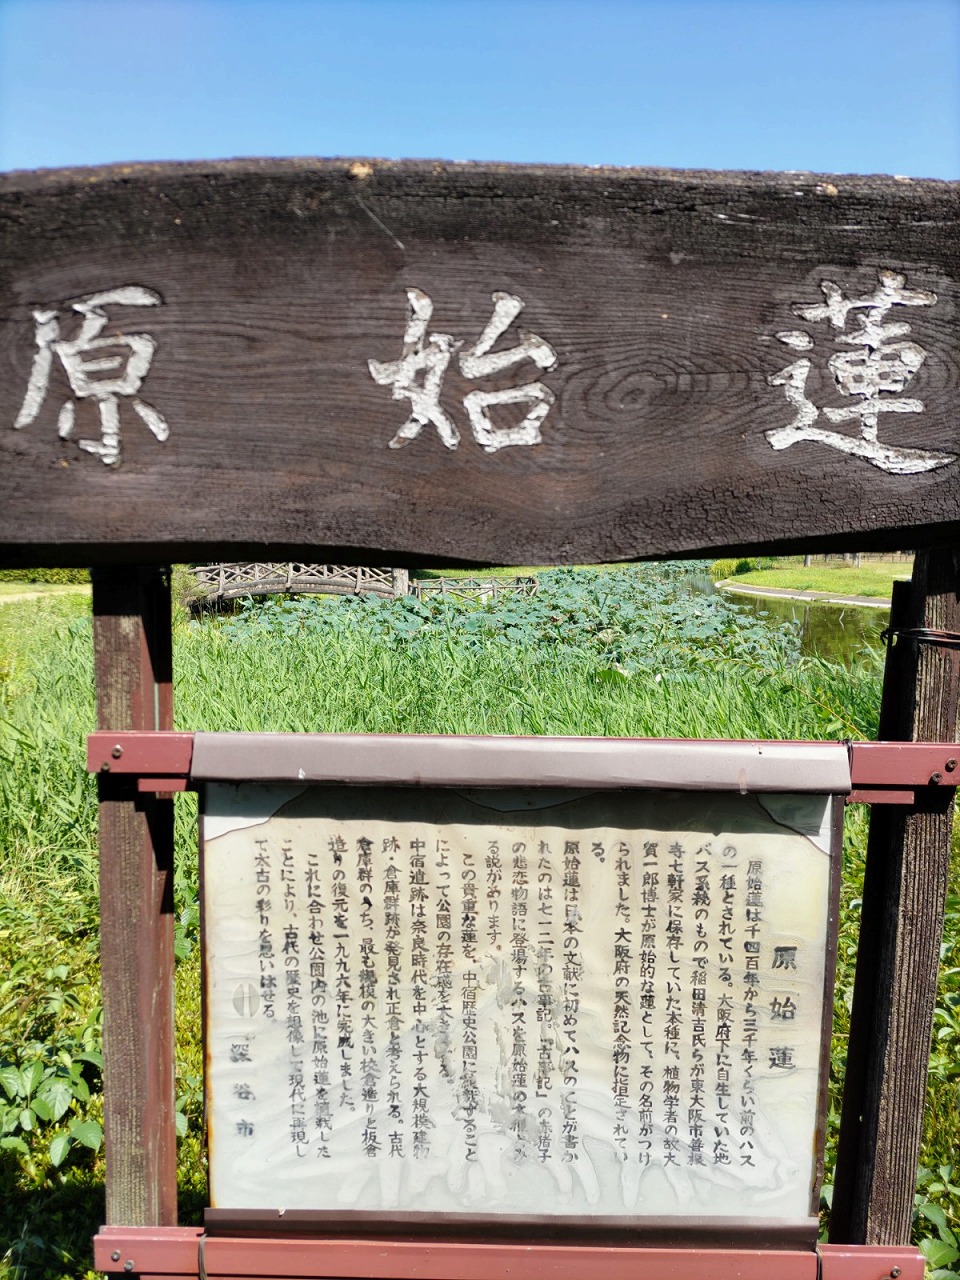 原始蓮
原始蓮
原始蓮は千四百年から三千年くらい前のハス
の一種とされている。大阪府下に自生していた地
バス系統のもので稲田清吉氏らが東大阪市善根
寺七軒家に保存していた本種に、植物学者の故大
賀一郎博士が原始的な蓮として、その名前がつけ
られました。大阪府の天然記念物に指定されてい
る。
原始蓮は日本の文献に初めてハスのことが書か
れたのは七一二年の古事記。「古事記」の赤猪子
の悲恋物語に登場するハスを原始蓮の
る説があります。
この貴重な蓮を、中宿歴史公園に
することに
よって公園の存在感を
中宿遺跡は奈良時代を中心とする大規模建物
跡・倉庫群跡が発見され正倉と考えられる。古代
倉庫群のうち、最も規模の大きい校倉造りと板倉
造りの復元を一九九六年に完成しました。
これに合わせ公園内の池に原始蓮を植栽した
ことにより、古代の歴史を想像して現代に再現し
て太古の彩りを思いはせる。
深谷市